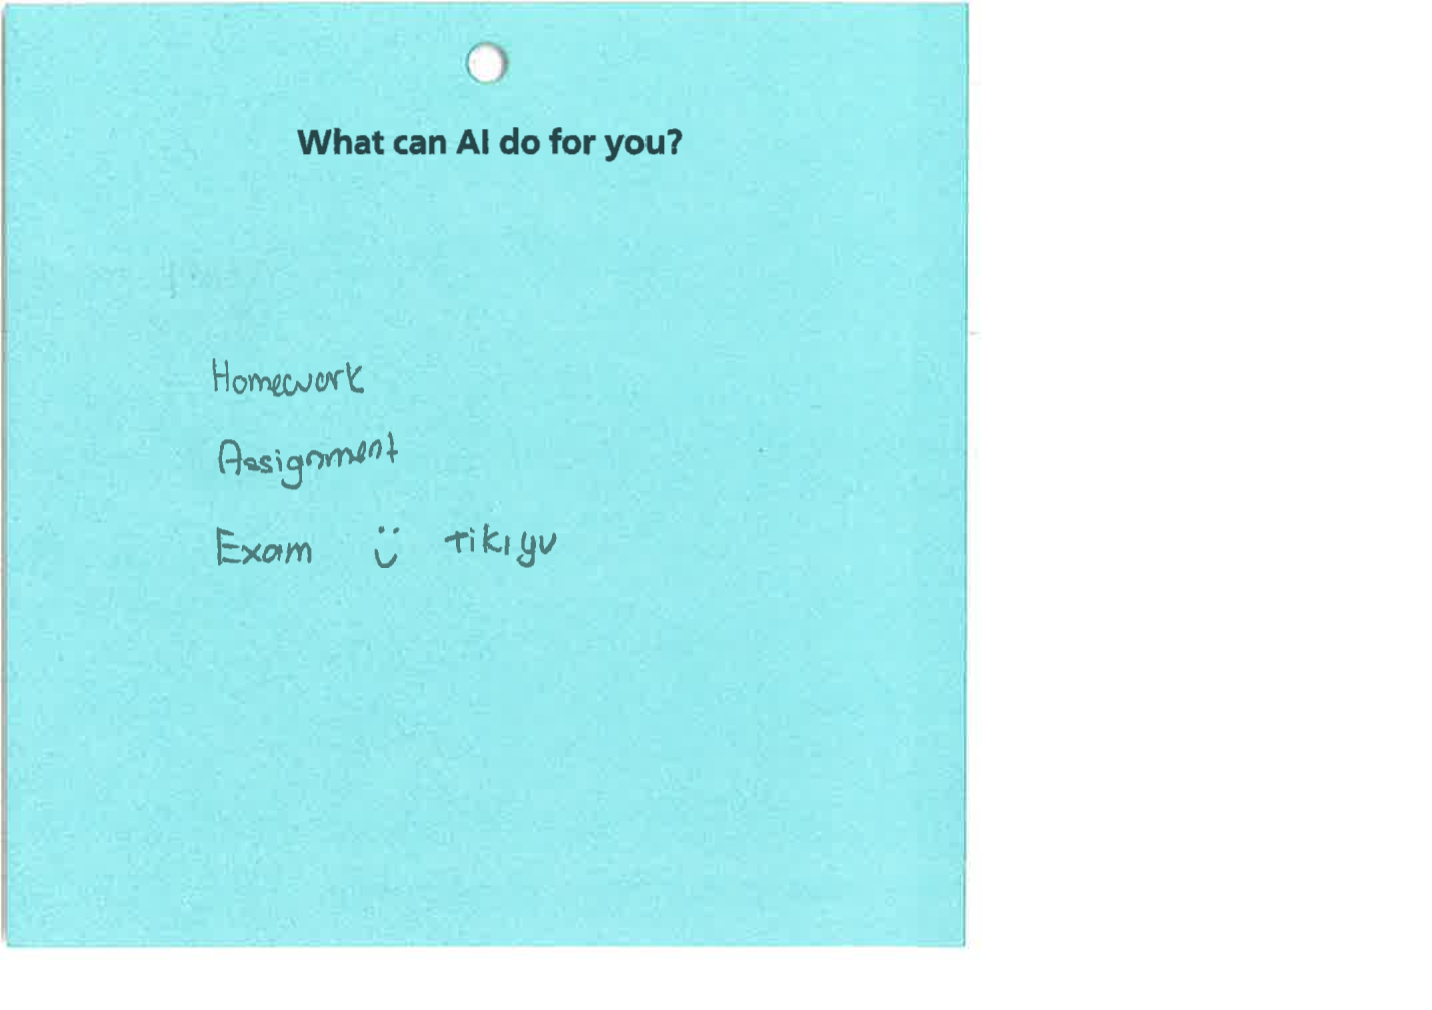 What can AI do for you?
Homework
Assignment
Exam ü tikiyu